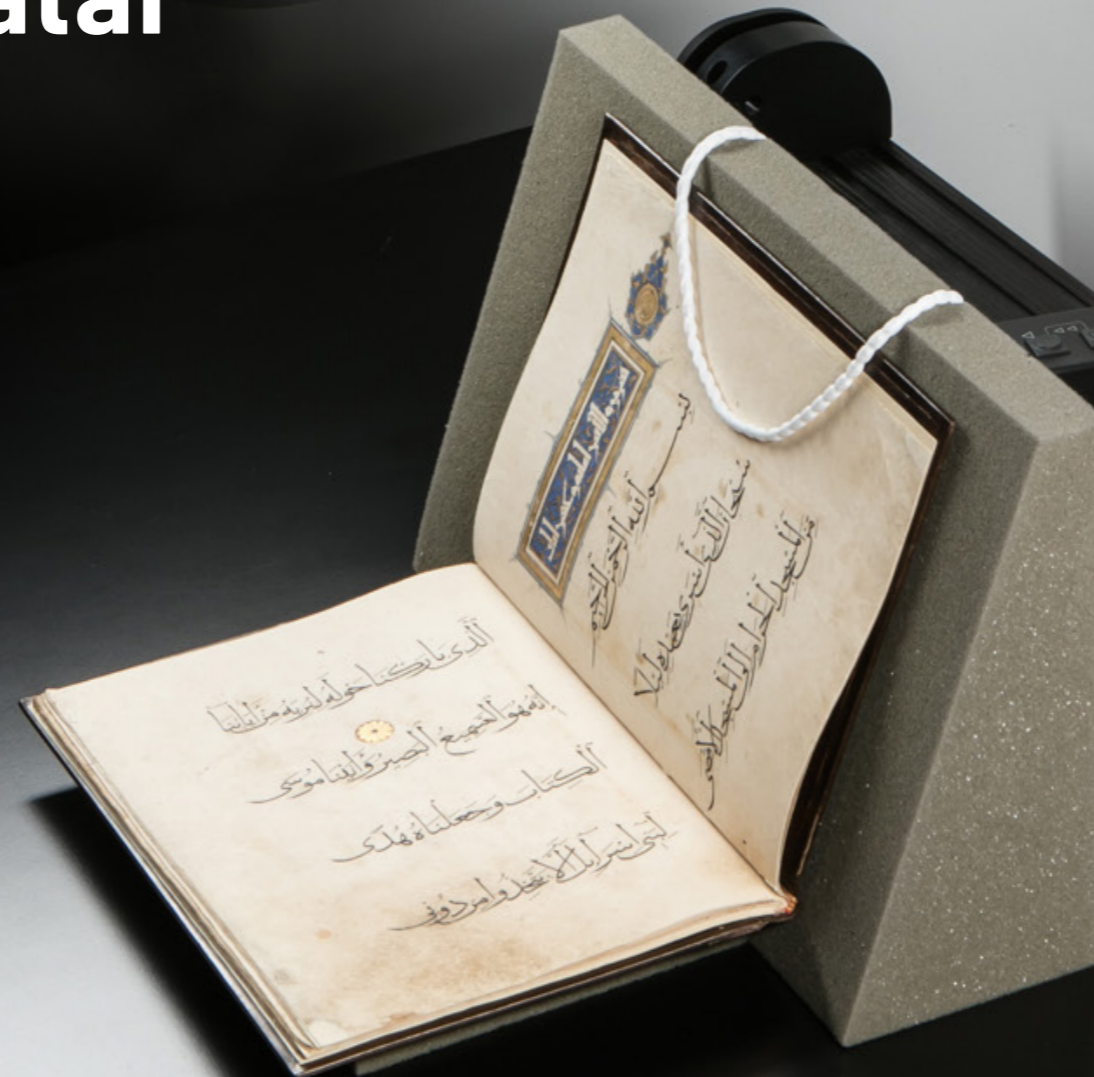 atar
سورة
بسم الله الرحمن الرحيم
سبحان الذي أسرى بعبده ليلا
من المسجد الحرام إلى المسجد الأقصى
الذي باركنا حوله لنريه من آياتنا
إنه هو السميع البصير وآتينا موسى
الكتاب وجعلناه هدى
لبني إسرائيل ألا تتخذوا من دوني